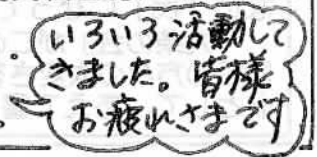 いろいろ活動して
きました。皆様
お疲れさまです